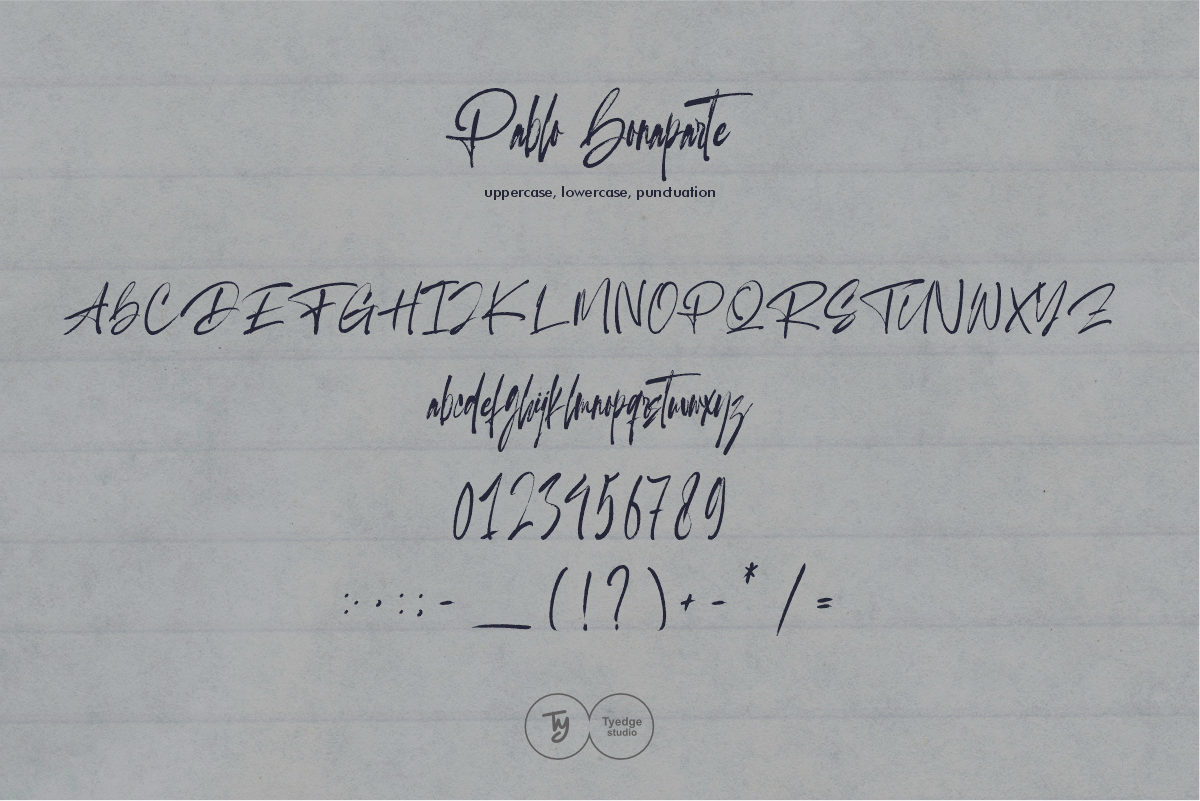 Pablo Bonaparte
uppercase, lowercase, punctuation
ABCDEFGHIJKLMNOPQRSTUVWXYZ
abcdefghijklmnopqrstuvwxyz
0123456789
:.,:;-_(!?)+-*/=
Ty
Tyedge
studio